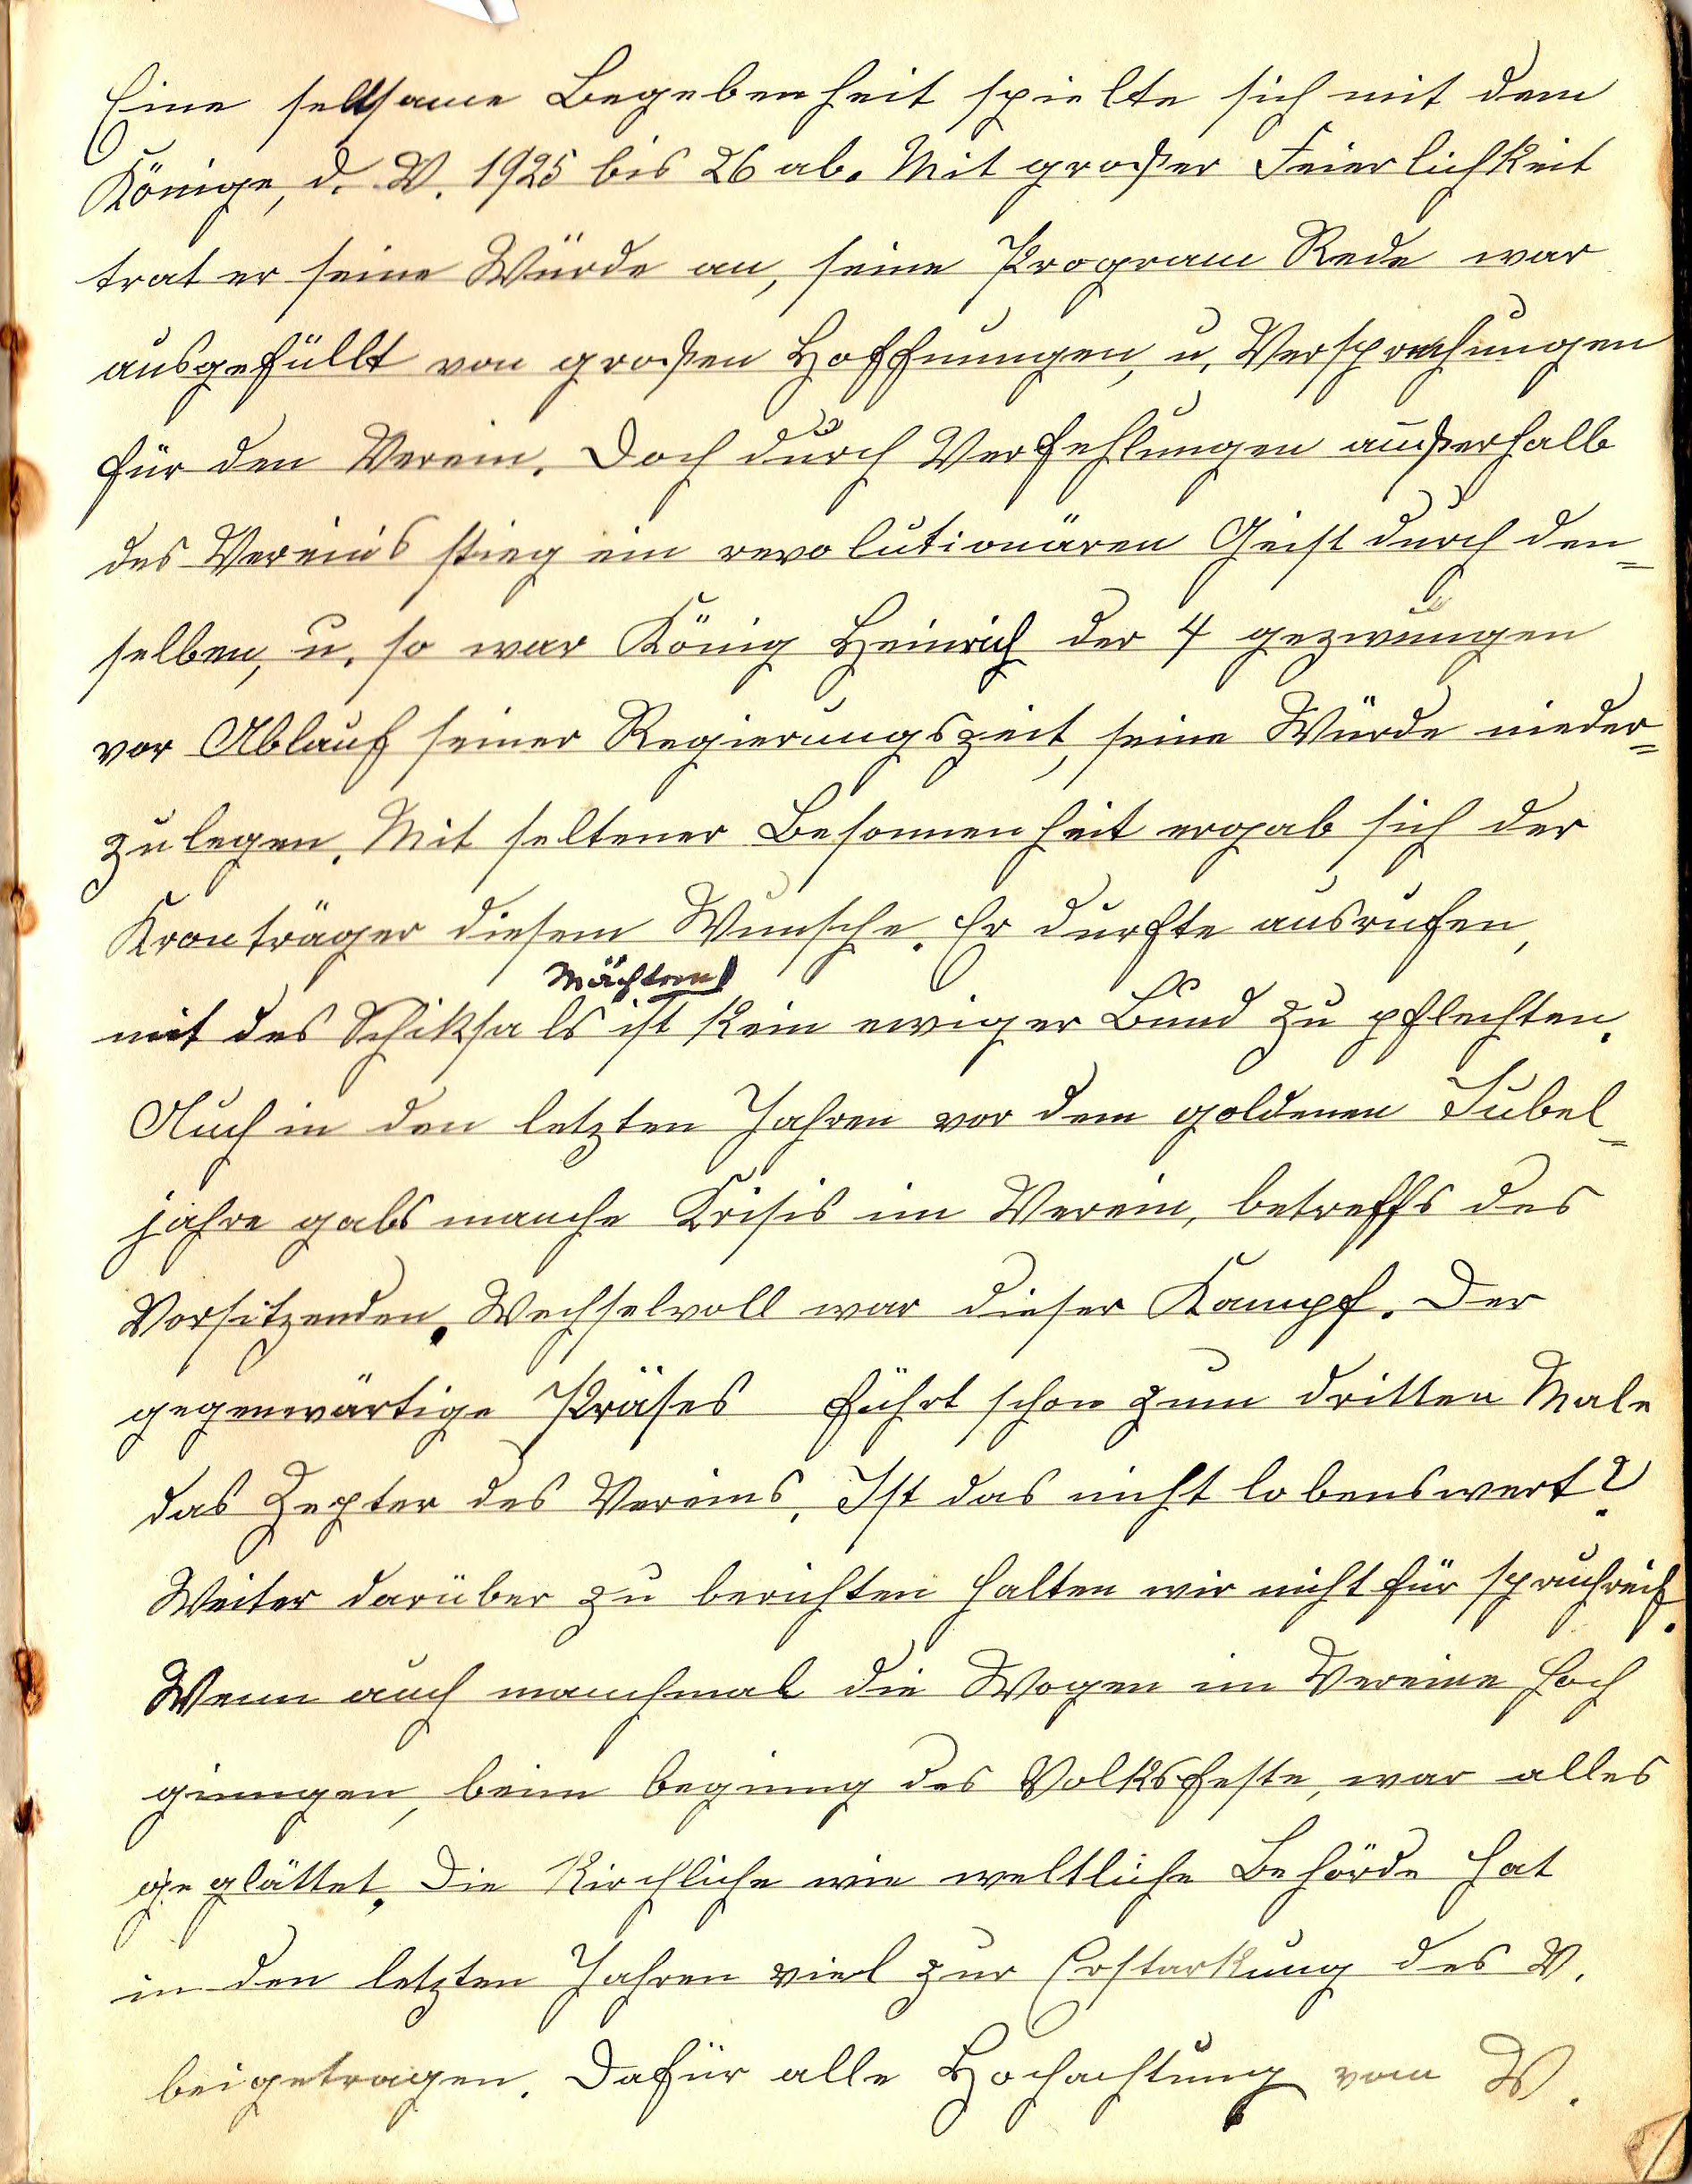 Eine seltsame Begebenheit spielte sich mit dem
Könige, d. V. 1925 bis 26 ab. Mit großer Feierlichkeit
trat er seine Würde an, seine Program Rede war
ausgefüllt von großen Hoffnungen, u. Versprechungen
für den Verein. Doch durch Verfehlungen außerhalb
des Vereins stieg ein revolutionären Geist durch den=
selben, u. so war König Heinrich der 4 gezwungen
vor Ablauf seiner Regierungszeit, seine Würde nieder=
zulegen. Mit seltener Besonnenheit ergab sich der
Kronträger diesem Wunsche. Er durfte ausrufen,
Mächten
mit des Schiksals ist kein ewiger Bund zu pflechten.
Auch in den letzten Jahren vor dem goldenen Jubel=
jahre gabs manche Krisis im Verein, betreffs des
Vorsitzenden. Wechselvoll war dieser Kampf. Der
gegenwärtige Präses führt schon zum dritten Male
das Zepter des Vereins. Ist das nicht lobenswert?
Weiter darüber zu berichten halten wir nicht für spruchreif.
Wenn auch manchmal die Wogen im Vereine hoch
gingen, beim beginng des Volksfeste, war alles
geglättet. Die Kirchliche wie weltliche Behörde hat
in den letzten Jahren viel zur Erstarkung des V.
beigetragen. Dafür alle Hochachtung vom V.